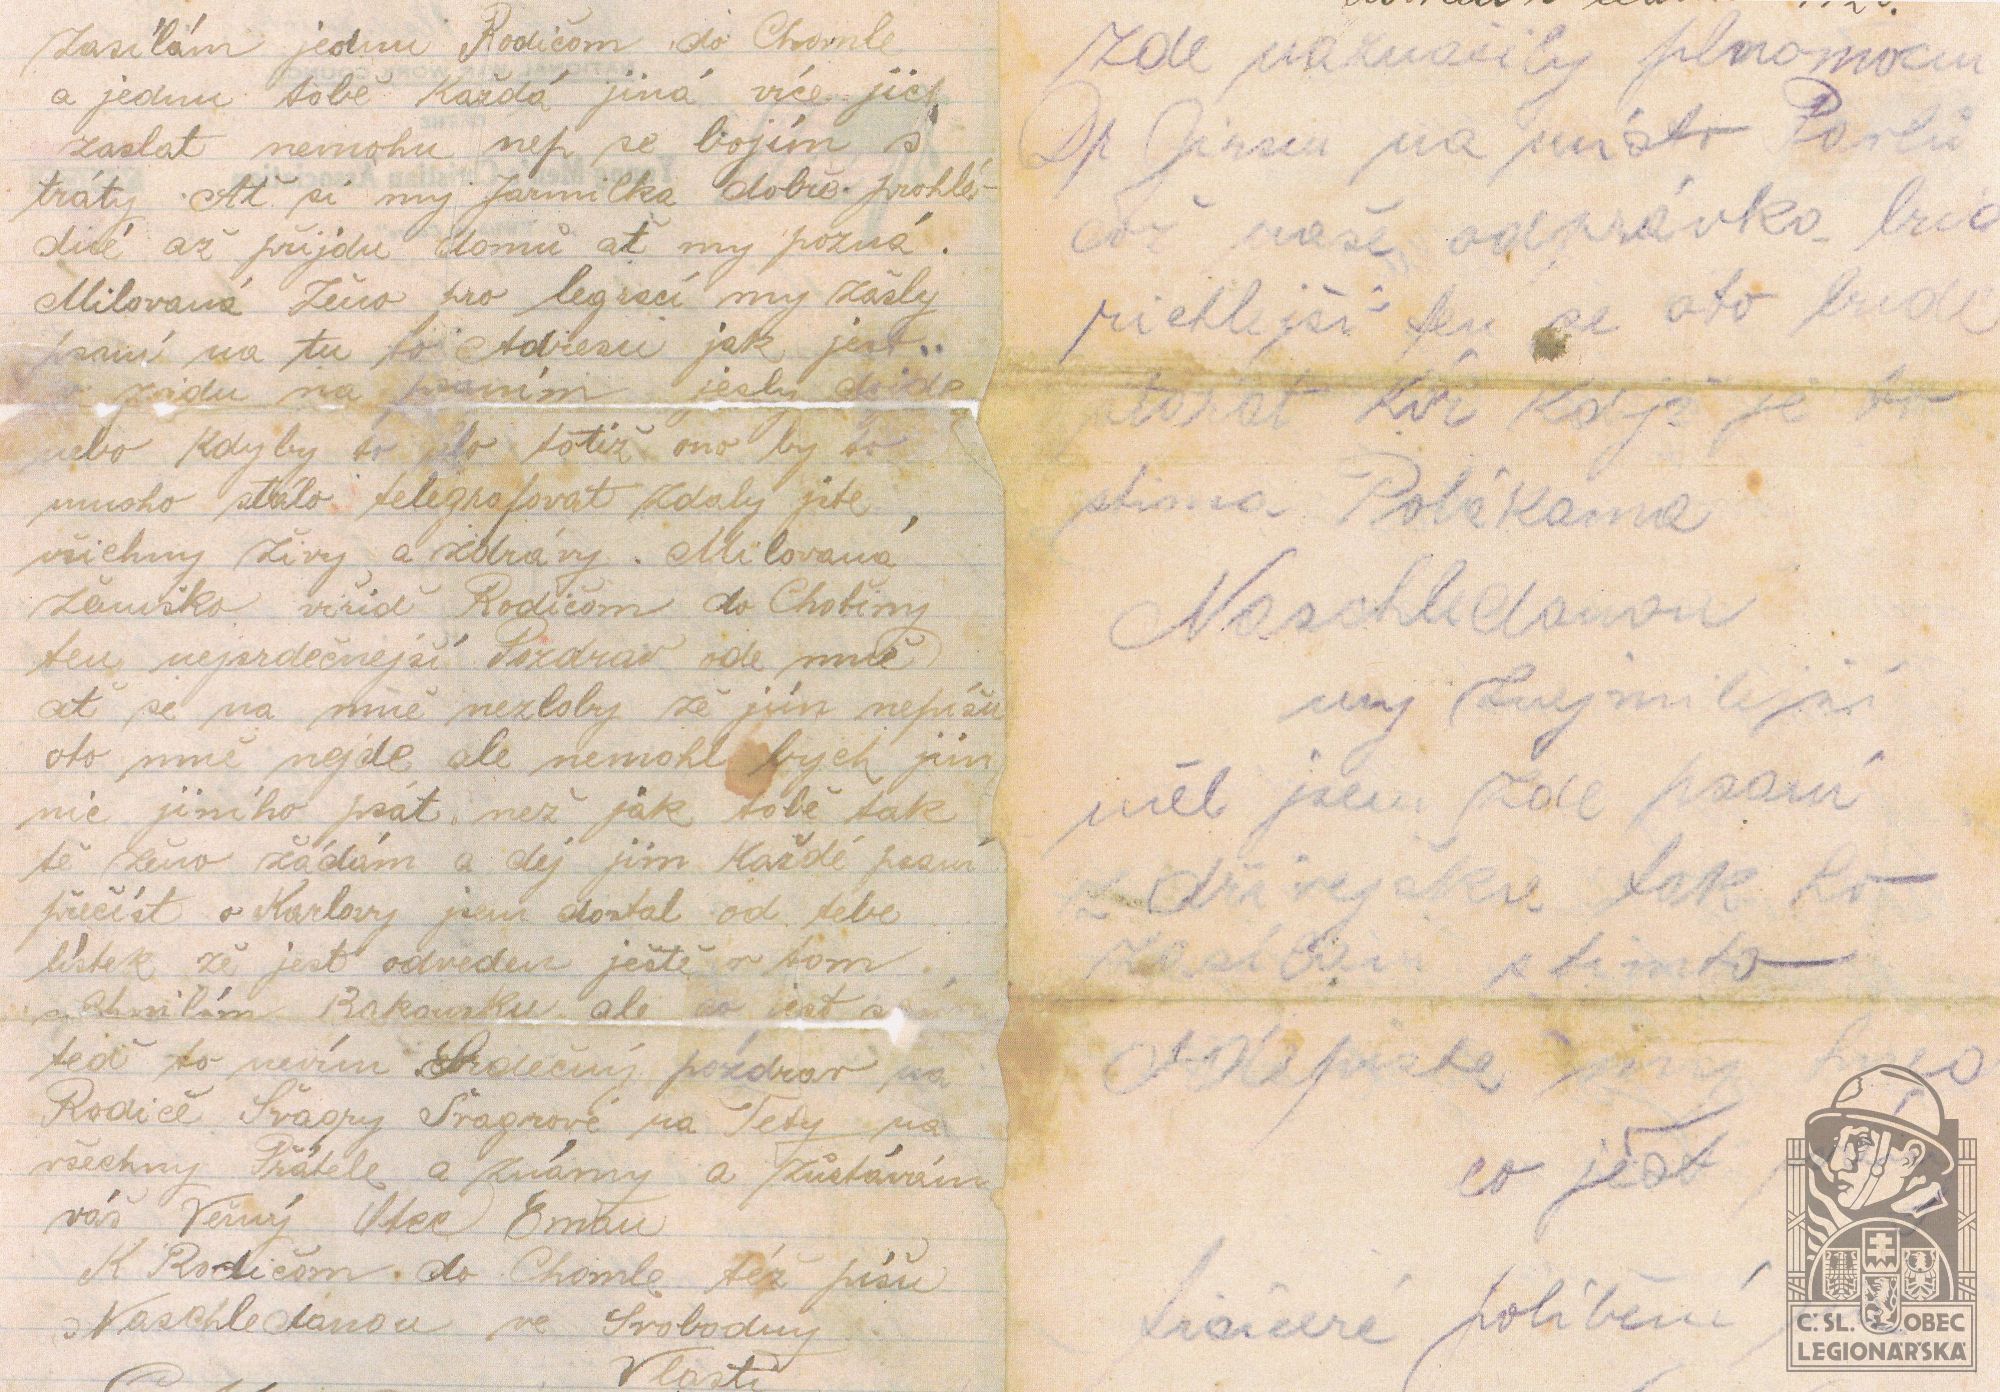 zasílám jednu Rodičom do Chomle
a jednu tobě Každá jiná více jich
zaslat nemohu nep se bojím s
tráty. Ať si my Jarmilka dobře prohlé-
dně až přijdu domů ať my pozná.
Milovaná Ženo pro legraci my zašly
psaní na tu to Adresu jak jest
zidu na psaním jesly dojde
nebo kdyby to šlo totiž ono by to
mnoho stálo telegrafovat zdaly jste
všichny živy a zdrávy. Milovaná
ženuško viřid Rodičom do Chotiny
ten nejsrdečnejší Pozdrav ode mně
ať se na mně nezloby že jím nepíšu
oto mně nejde ale nemohl bych jim
nic jiního psát než jak tobě tak
tě ženo žádám a dej jim každé psaní
přečíst o Karlovy jsem dostal od tebe
lístek že jest odveden ještě v tom
shnilám Rakousku ale co jest s ním
teď to nevím Srdečný pozdrav na
Rodiče Švagry Švagrové na Tety na
všechny Přátele a známy a zůstávám
váš Věrný Otec Eman
K Rodičom do Chomle též píšu
Naschledanou ve Svobodny
Vlasti
zde naznačily plnomocn
Dr Girsu na místo Pavlů
což naše odprávka bud
richlejší ten se oto bude
starat víc když je to
stima Polákama
Naschledanou
my Znejmilejší
měl jsem zde psaní
z dřívejška tak ho
zasílám stimto
A Napište my hned
co jest
Srdceré políbění
Č. SL. OBEC
LEGIONÁŘSKÁ